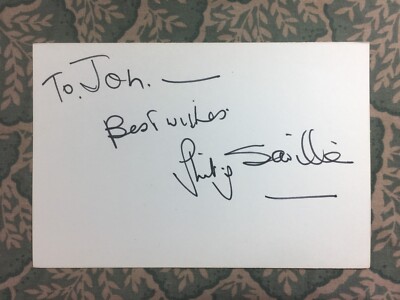 To. Jon. —
Best wishes
Philip Saville